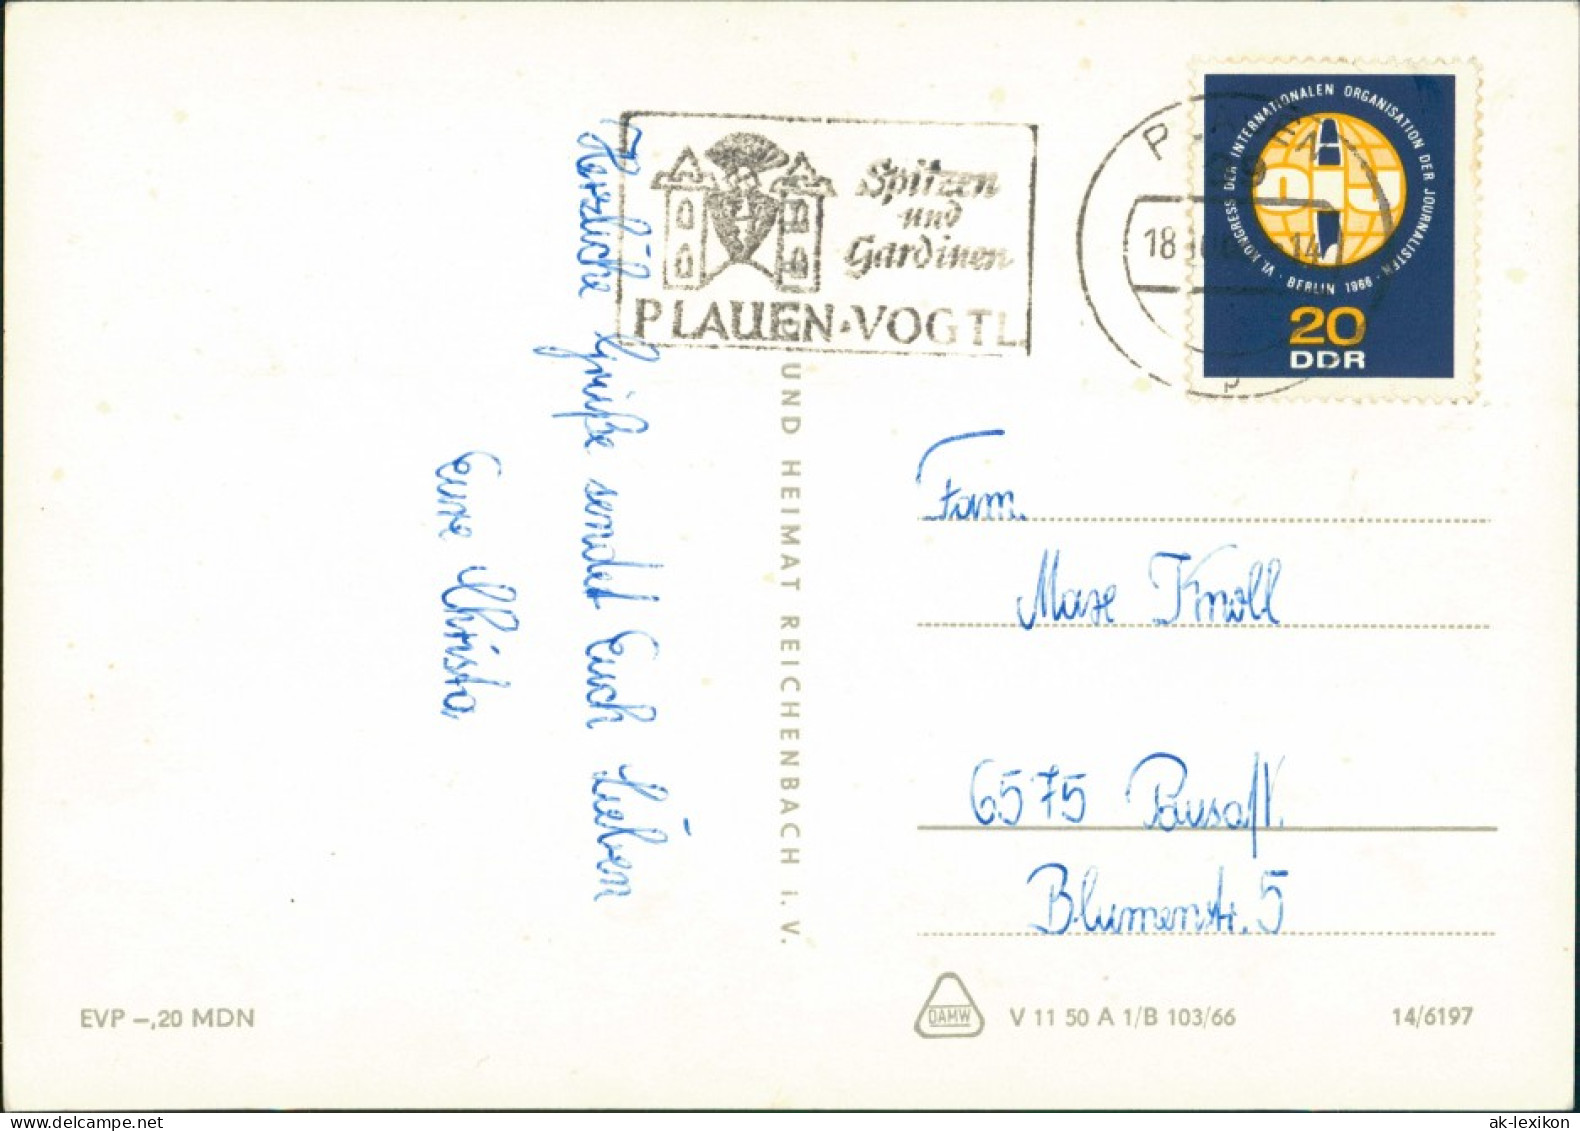 Herzliche Grüße sendet Euch Lieben
Eure Christa
Spitzen
und
Gardinen
PLAUEN·VOGTL
18
14
VI. KONGRESS DER INTERNATIONALEN ORGANISATION DER JOURNALISTEN · BERLIN 1966 ·
20
DDR
UND HEIMAT REICHENBACH i. V.
Fam.
Max Knoll
6575 Pausa/V.
Blumenstr. 5
EVP –,20 MDN
DAMW
V 11 50 A 1/B 103/66
14/6197
ak-lexikon